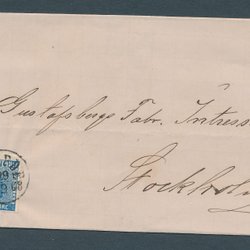 Gustafsbergs Fabr. Intress
Stockholm